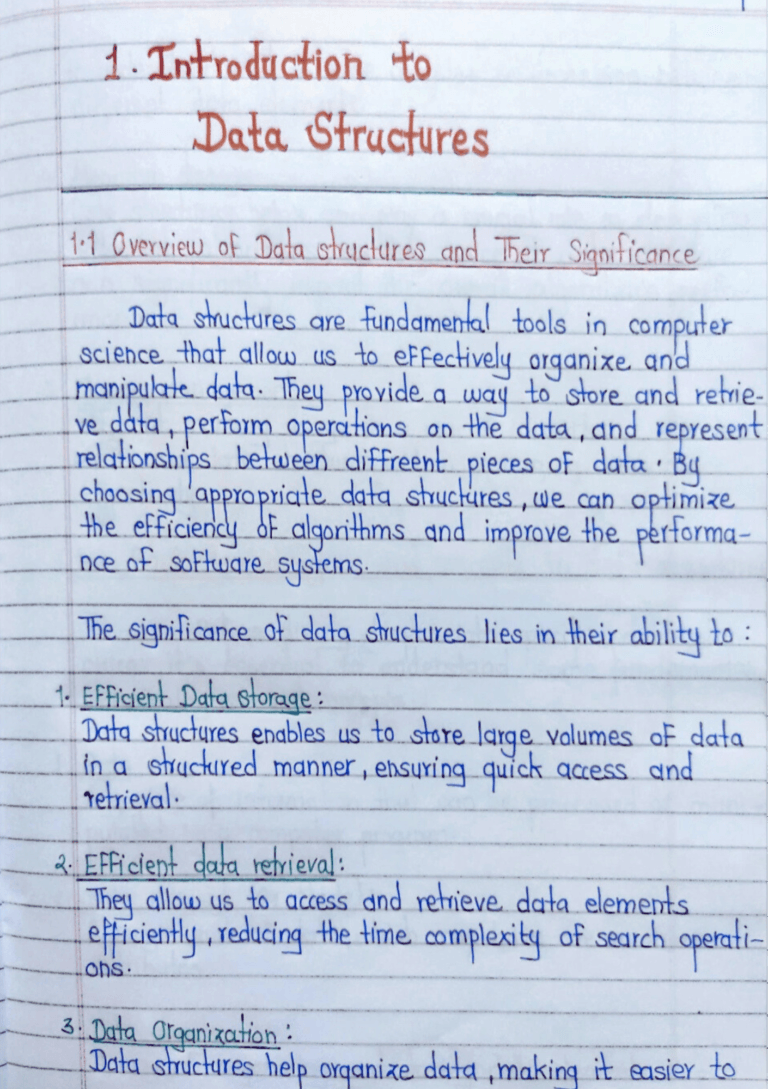 1. Introduction to
Data Structures
1.1 Overview of Data structures and Their Significance
Data structures are fundamental tools in computer
science that allow us to effectively organize and
manipulate data. They provide a way to store and retrie-
ve data, perform operations on the data, and represent
relationships between diffreent pieces of data. By
choosing appropriate data structures, we can optimize
the efficiency of algorithms and improve the performa-
nce of software systems.
The significance of data structures lies in their ability to :
1. Efficient Data storage :
Data structures enables us to store large volumes of data
in a structured manner, ensuring quick access and
retrieval.
2. Efficient data retrieval :
They allow us to access and retrieve data elements
efficiently, reducing the time complexity of search operati-
ons.
3. Data Organization :
Data structures help organize data, making it easier to